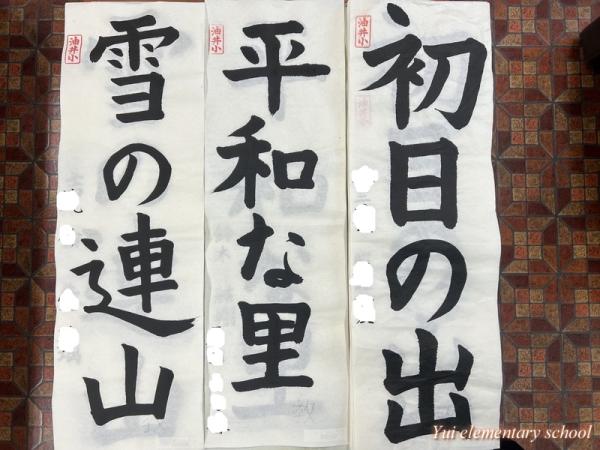 初日の出
油井小
平和な里
油井小
雪の連山
油井小
Yui elementary school